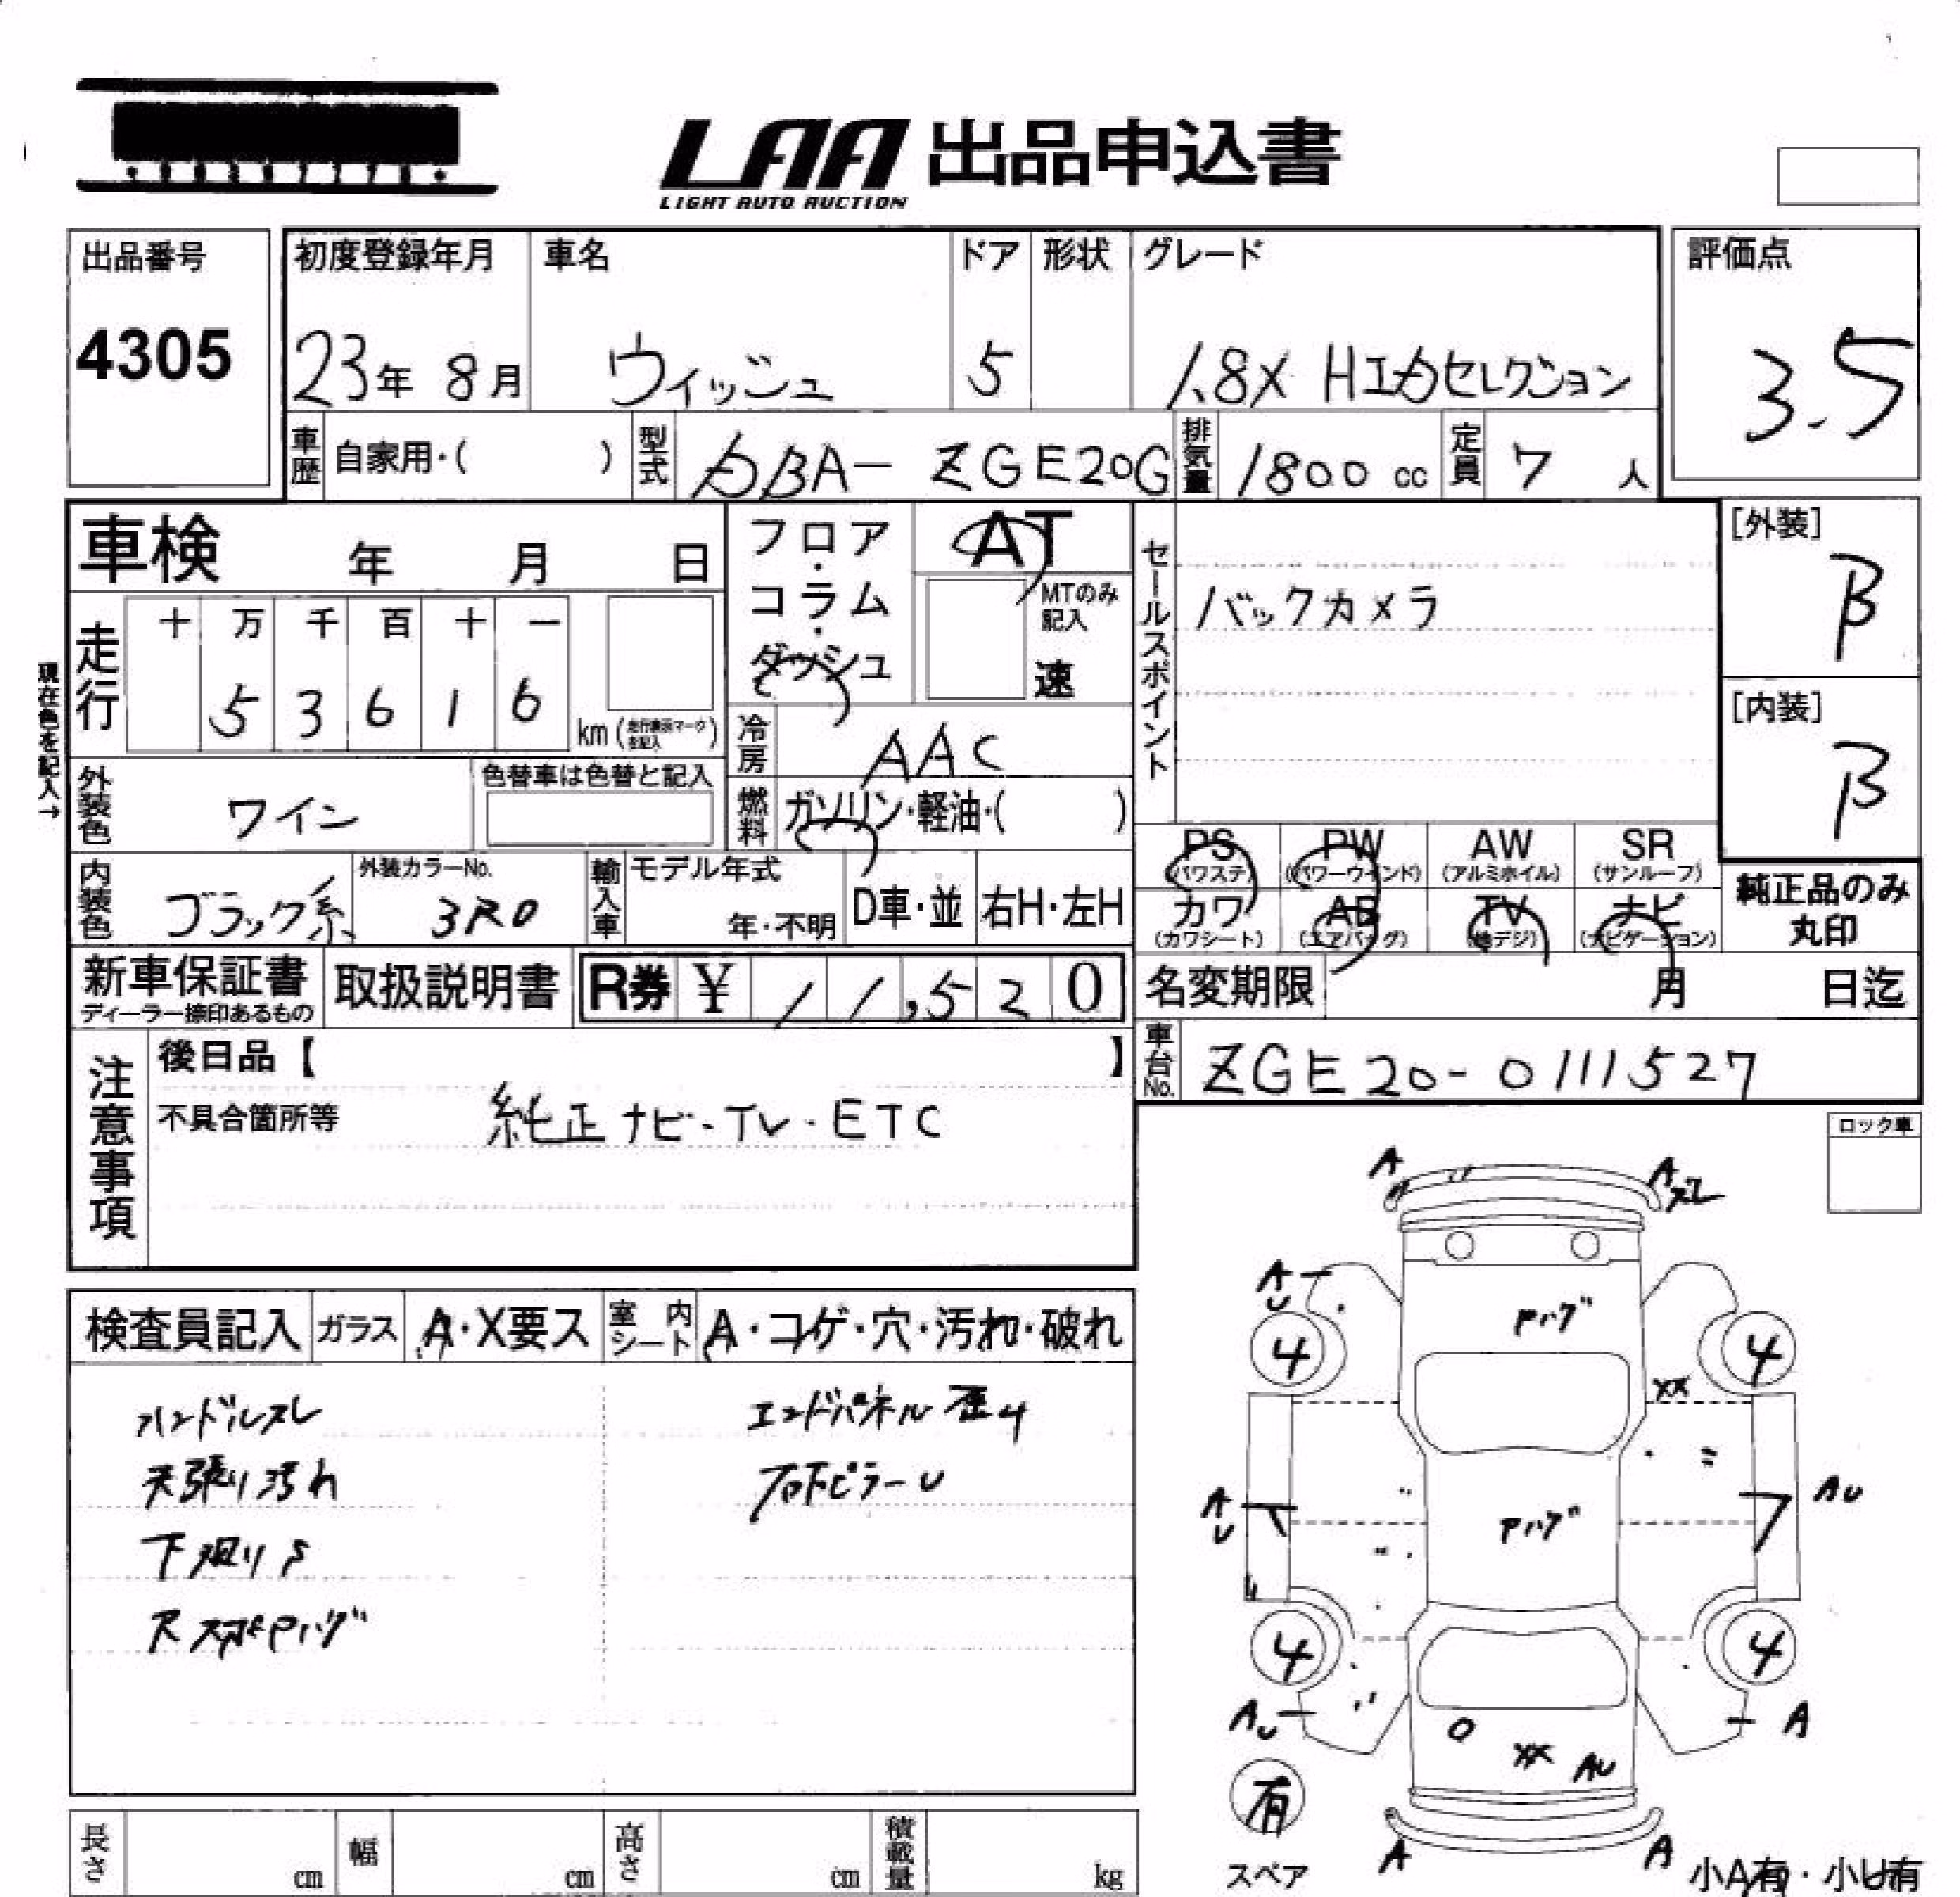 LAA 出品申込書
LIGHT AUTO AUCTION
出品番号
4305
初度登録年月
23年 8月
車名
ウィッシュ
ドア
5
形状
グレード
1.8X HIDセレクション
評価点
3.5
車歴 自家用・( )
型式 DBA- ZGE20G
排気量 1800 cc
定員 7 人
車検 年 月 日
フロア・コラム・ダッシュ
AT
MTのみ記入
速
セールスポイント
バックカメラ
[外装]
B
[内装]
B
現在色を記入→
走行
十 万 千 百 十 一
5 3 6 1 6
km (走行表示マークを記入)
冷房 AAC
燃料 ガソリン・軽油・( )
外装色 ワイン
色替車は色替と記入
内装色 ブラック系
外装カラーNo.
3R0
輸入車
モデル年式
年・不明
D車・並
右H・左H
PS (パワステ)
PW (パワーウインド)
AW (アルミホイル)
SR (サンルーフ)
カワ (カワシート)
AB (エアバッグ)
TV (地デジ)
ナビ (ナビゲーション)
純正品のみ
丸印
新車保証書
ディーラー捺印あるもの
取扱説明書
R券 ¥ 11,520
名変期限 月 日迄
車台No. ZGE20-0111527
注意事項
後日品【 】
不具合箇所等
純正ナビ・TV・ETC
ロック車
検査員記入
ガラス A・X要ス
室内シート A・コゲ・穴・汚れ・破れ
ハンドルスレ
天張り汚れ
下廻りS
エンドパネル歪4
右下ピラーU
A
A
XL
A
U
Pハゲ
4
4
XX
A
U
AU
Pハゲ
4
4
AU
A
XX
AU
有
スペア
A
A
小A有・小U有
長さ cm
幅 cm
高さ cm
積載量 kg